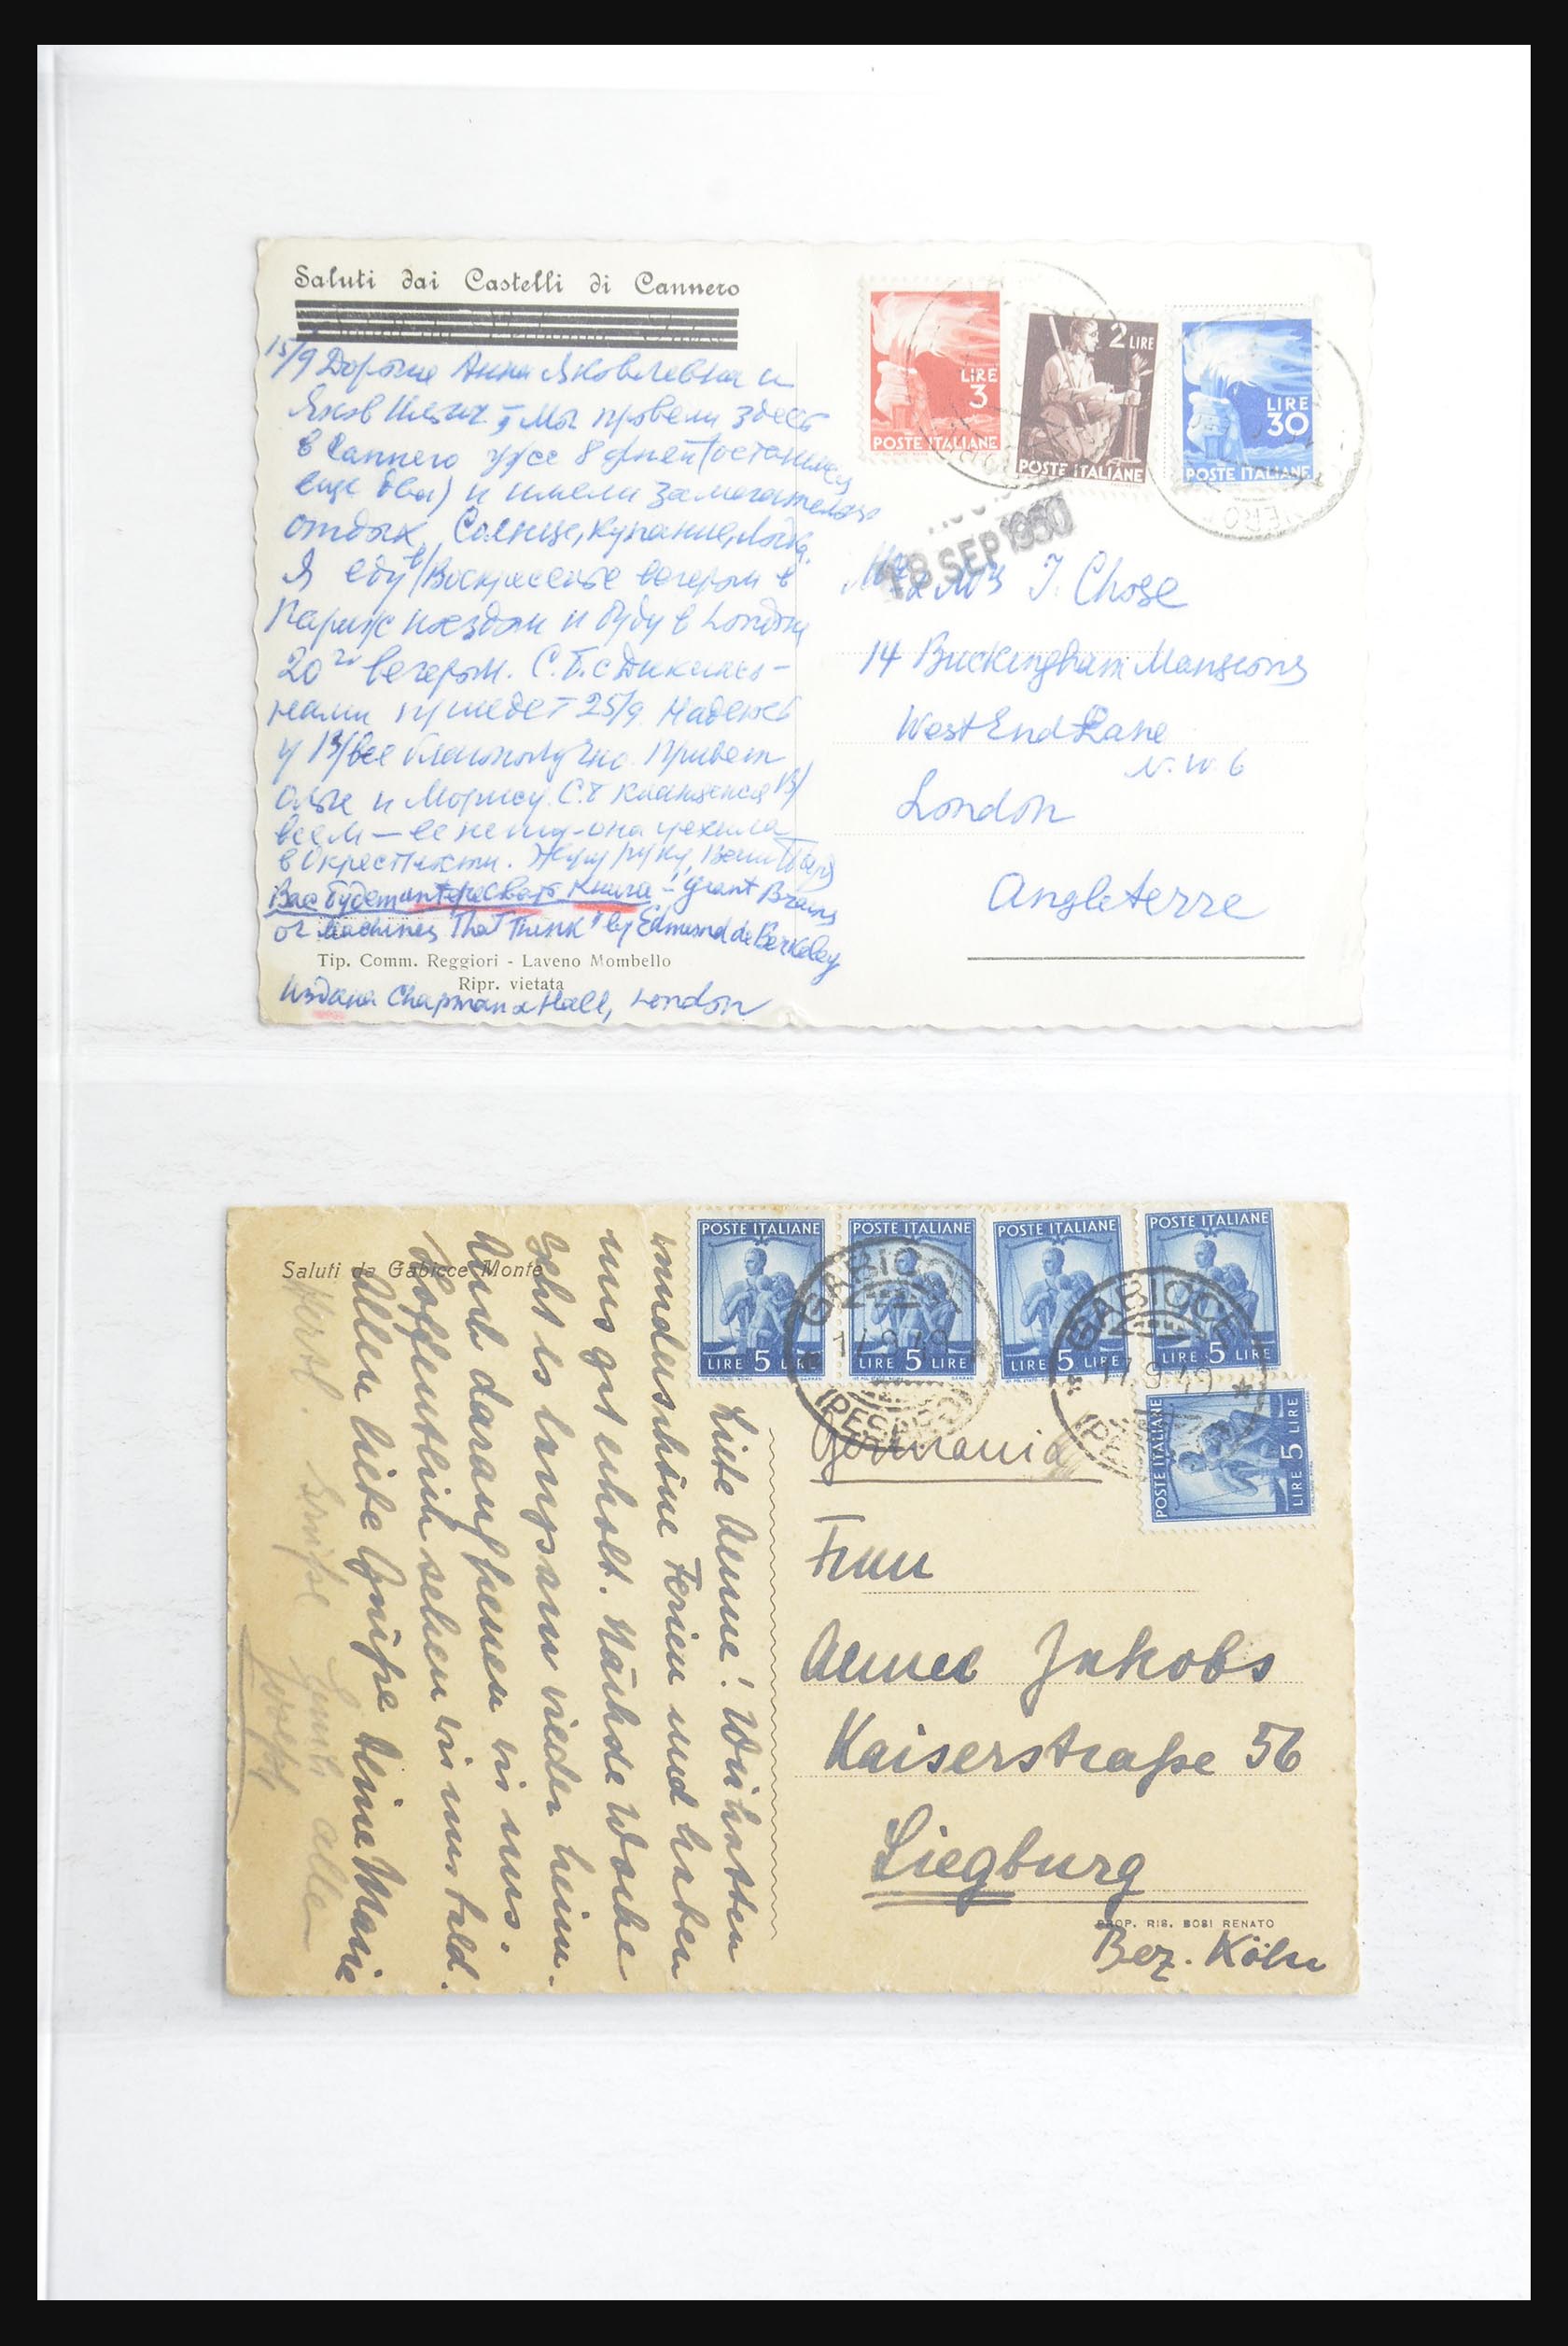 Saluti dai Castelli di Cannero
15/9 Дорогие Анна Яковлевна и
Яков Ильич, Мы провели здесь
в Cannero уже 8 дней (останемся
еще два) и имели замечательный
отдых. Солнце, купание, лодка.
Я еду в Воскресенье вечером в
Париж поездом и буду в London
20го вечером. С.Б. с
приедет 25/9. Надеюсь
у Вас все благополучно. Привет
Ольге и Морису. С.Б. кланяется
всем — ее нету - она уехала
в окрестности. Жму руку, Ваш
Вас будет интересовать книга - "Giant Brains
or Machines That Think" by Edmund de Berkeley
Tip. Comm. Reggiori - Laveno Mombello
Ripr. vietata
Издана Chapman & Hall, London
LIRE
3
POSTE ITALIANE
2 LIRE
POSTE ITALIANE
LIRE
30
POSTE ITALIANE
18 SEP 1950
Mr & Mrs J. Chose
14 Buckingham Mansions
West End Lane
N.W.6
London
Angleterre
Saluti da Gabicce Monte
Liebe Aenne! Wir hatten
wunderschöne Ferien und haben
uns gut erholt. Nächste Woche
geht es langsam wieder heim.
Auch darauf freuen wir uns.
Hoffentlich sehen wir uns bald.
Allen liebe Grüße Deine Marie
Herzl. Grüße Euch alle
Josef
POSTE ITALIANE
LIRE 5 LIRE
POSTE ITALIANE
LIRE 5 LIRE
POSTE ITALIANE
LIRE 5 LIRE
POSTE ITALIANE
LIRE 5 LIRE
POSTE ITALIANE
LIRE 5 LIRE
GABICCE
17.9.49
GABICCE
17.9.49
Germania
Frau
Aenne Jakobs
Kaiserstraße 56
Siegburg
PROP. RIS. BOSI RENATO
Bez. Köln